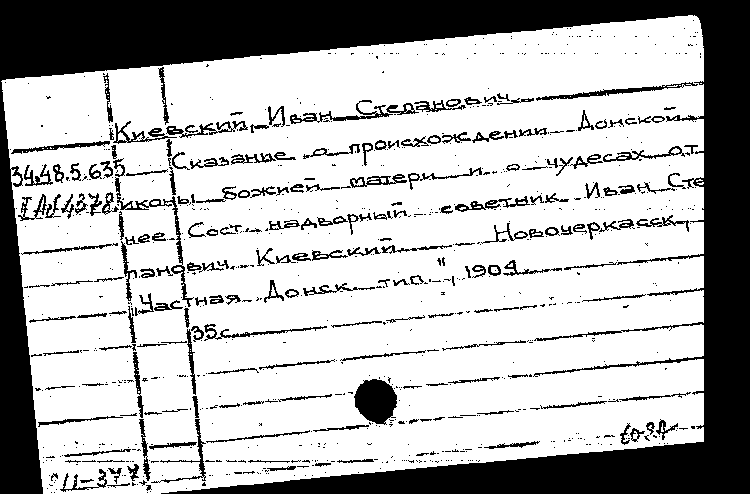 Киевский, Иван Степанович
34.48.5.635 Сказание о происхождении Донской
иконы божией матери и о чудесах от
нее. Сост. надворный советник Иван Сте
панович Киевский. Новочеркасск,
„Частная Донск. тип.", 1904.
35с.